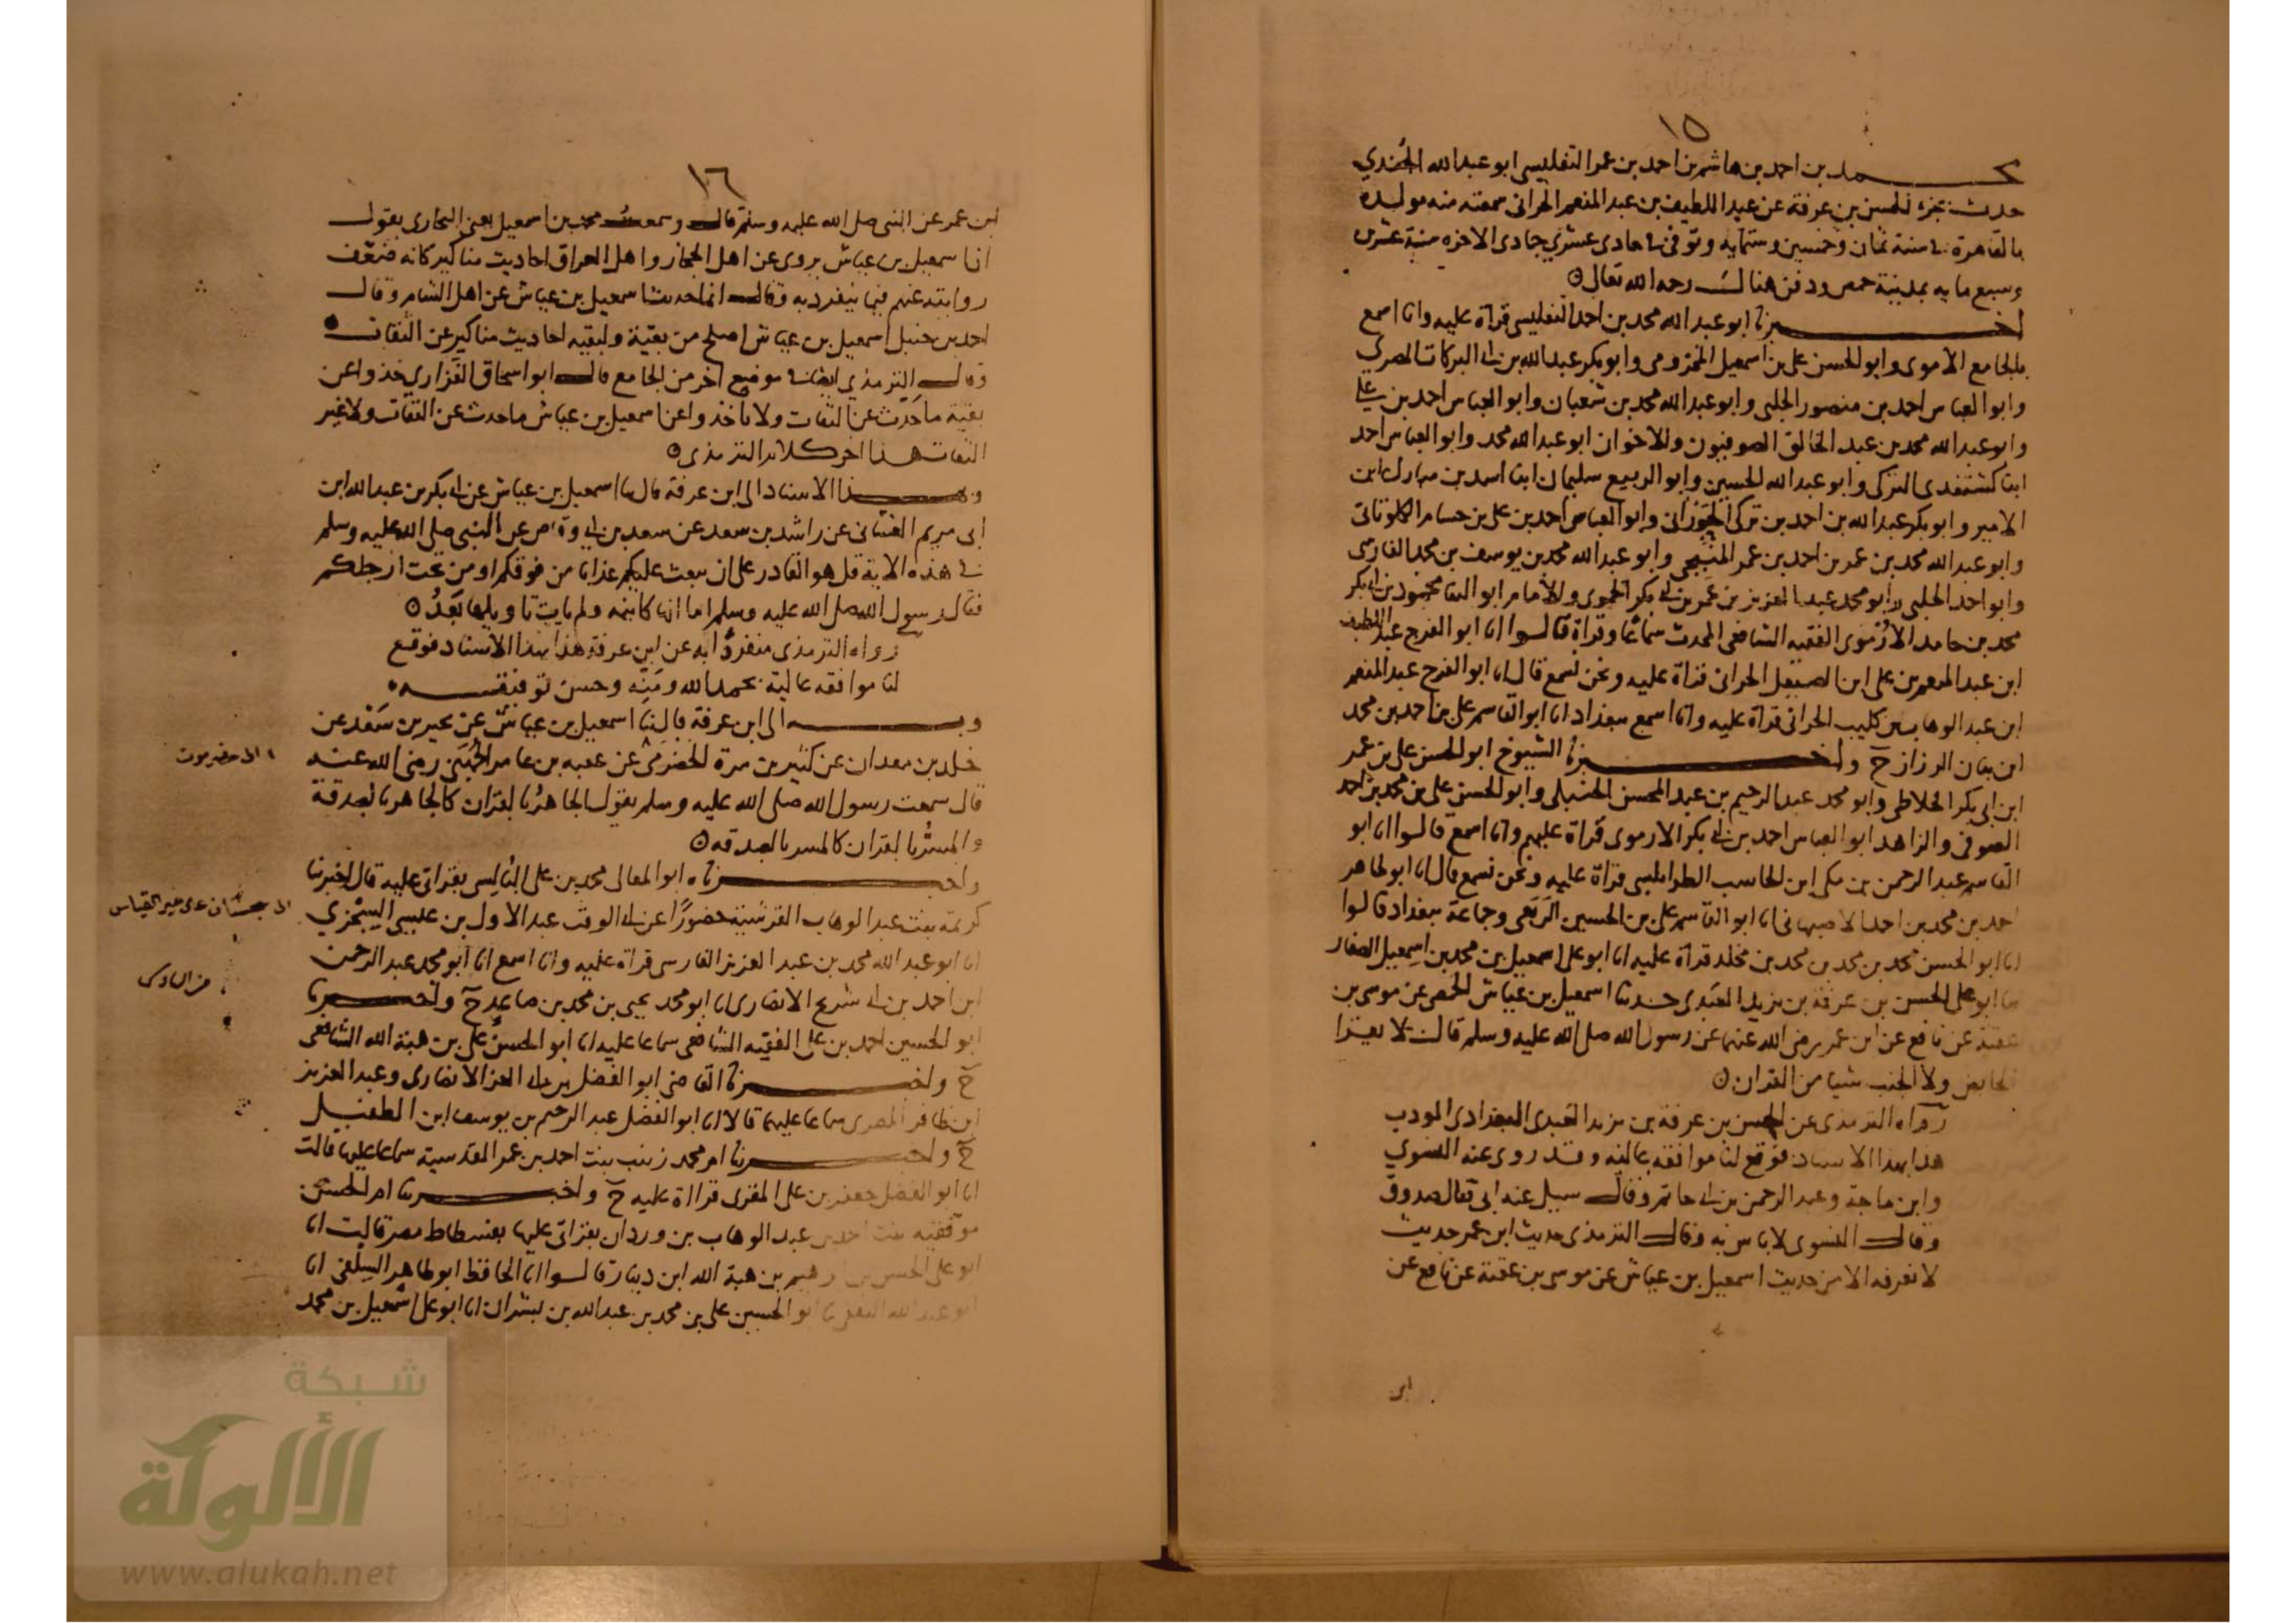 ١٥
محمد بن احمد بن هاشم بن احمد بن عمر التفليسي ابو عبد الله الجندي
حدث بجزء الحسن بن عرفة عن عبد اللطيف بن عبد المنعم الحراني سمعته منه مولده
بالقاهرة في سنة ثمان وخمسين وستمايه وتوفي في حادي عشري جمادي الاخره سنة عشرين
وسبع مايه بمدينة حمص ودفن هنالك رحمه الله تعالى
اخبرنا ابو عبد الله محمد بن احمد التفليسي قراة عليه وانا اسمع
بالجامع الاموي وابو الحسن علي بن اسمعيل المخزومي وابو بكر عبد الله بن ابي البركات المصري
وابو العباس احمد بن منصور الحلبي وابو عبد الله محمد بن شعبان وابو العباس احمد بن علي
وابو عبد الله محمد بن عبد الخالق الصوفيون والاخوان ابو عبد الله محمد وابو العباس احمد
ابنا كشتغدي التركي وابو عبد الله الحسين وابو الربيع سليمان ابنا اسد بن مبارك ابن
الامير وابو بكر عبد الله بن احمد بن تركي الجوزاني وابو العباس احمد بن علي بن حسام الكلوتاتي
وابو عبد الله محمد بن عمر بن احمد بن عمر المنبجي وابو عبد الله محمد بن يوسف بن محمد الفارسي
وابو احمد الحلبي وابو محمد عبد العزيز بن عمر بن ابي بكر الحموي والامام ابو الثنا محمود بن ابي بكر
محمد بن حامد الارموي الفقيه الشافعي المحدث سماعا وقراة قالوا انا ابو الفرج عبد اللطيف
ابن عبد المنعم بن علي ابن الصيقل الحراني قراة عليه ونحن نسمع قال انا ابو الفرج عبد المنعم
ابن عبد الوهاب بن كليب الحراني قراة عليه وانا اسمع ببغداد انا ابو القاسم علي بن احمد بن محمد
ابن بيان الرزاز ح واخبرنا الشيوخ ابو الحسن علي بن عمر
ابن ابي بكر الخلاطي وابو محمد عبد الرحيم بن عبد المحسن الحنبلي وابو الحسن علي بن محمد بن احمد
الصوفي والزاهد ابو العباس احمد بن ابي بكر الارموي قراة عليهم وانا اسمع قالوا انا ابو
القاسم عبد الرحمن بن مكي ابن الحاسب الطرابلسي قراة عليه ونحن نسمع قال انا ابو طاهر
احمد بن محمد بن احمد الاصبهاني انا ابو القاسم علي بن الحسين الربعي وجماعة ببغداد قالوا
انا ابو الحسن محمد بن محمد بن محمد بن مخلد قراة عليه انا ابو علي اسمعيل بن محمد بن اسمعيل الصفار
ثنا ابو علي الحسن بن عرفة بن يزيد العبدي حدثنا اسمعيل بن عياش الحمصي عن موسى بن
عقبة عن نافع عن ابن عمر رضي الله عنهما عن رسول الله صلى الله عليه وسلم قال لا يقرا
الحايض ولا الجنب شيا من القران
رواه الترمذي عن الحسن بن عرفة بن يزيد العبدي البغدادي المودب
هذا بهذا الاسناد فوقع لنا موافقة عالية وقد روى عنه النسوي
وابن ماجة وعبد الرحمن بن ابي حاتم وقال سيل عنه ابي فقال صدوق
وقال النسوي لا باس به وقال الترمذي حديث ابن عمر حديث
لا نعرفه الا من حديث اسمعيل بن عياش عن موسى بن عقبة عن نافع عن
ابن
١٦
ابن عمر عن النبي صلى الله عليه وسلم قال وسمعت محمد بن اسمعيل يعني البخاري يقول
ان اسمعيل بن عياش يروي عن اهل الحجاز واهل العراق احاديث مناكير كانه ضعف
روايته عنهم فيما ينفرد به وقال انما حديث اسمعيل بن عياش عن اهل الشام وقال
احمد بن حنبل اسمعيل بن عياش اصلح من بقية ولبقيه احاديث مناكير عن الثقات
وقال الترمذي ايضا في موضع اخر من الجامع قال ابو اسحاق الفزاري خذوا عن
بقية ما حدث عن الثقات ولا تاخذوا عن اسمعيل بن عياش ما حدث عن الثقات ولا غير
الثقات هذا اخر كلام الترمذي
وبهذا الاسناد الى ابن عرفة قال ثنا اسمعيل بن عياش عن ابي بكر بن عبد الله ابن
ابي مريم الغساني عن راشد بن سعد عن سعد بن ابي وقاص عن النبي صلى الله عليه وسلم
في هذه الاية قل هو القادر على ان يبعث عليكم عذابا من فوقكم او من تحت ارجلكم
فقال رسول الله صلى الله عليه وسلم اما انها كاينه ولم يات تاويلها بعد
رواه الترمذي منفردا به عن ابن عرفة هذا بهذا الاسناد فوقع
لنا موافقه عالية بحمد الله ومنه وحسن توفيقه
وبه الى ابن عرفة قال ثنا اسمعيل بن عياش عن بحير بن سعد عن
خلد بن معدان عن كثير بن مرة الحضرمي عن عقبه بن عامر الجهني رضي الله عنه
١ الى حضرموت
قال سمعت رسول الله صلى الله عليه وسلم يقول الجاهر بالقران كالجاهر بالصدقة
والمسر بالقران كالمسر بالصدقه
واخبرنا ابو المعالي محمد بن علي البالسي بقراتي عليه قال اخبرتنا
كريمة بنت عبد الوهاب القرشية حضورا عن ابي الوقت عبد الاول بن عيسى السجزي
الى سجستان على غير القياس
انا ابو عبد الله محمد بن عبد العزيز الفارسي قراة عليه وانا اسمع انا ابو محمد عبد الرحمن
ابن احمد بن ابي شريح الانصاري انا ابو محمد يحيى بن محمد بن صاعد ح واخبرنا
ابو الحسين احمد بن علي الفقيه الشافعي سماعا عليه انا ابو الحسن علي بن هبة الله الشافعي
ح واخبرنا القاضي ابو الفضل بن ابي العز الانصاري وعبد العزيز
ابن ظافر المصري سماعا عليهما قالا انا ابو الفضل عبد الرحيم بن يوسف ابن الطفيل
ح واخبرتنا ام محمد زينب بنت احمد بن عمر المقدسية سماعا عليها قالت
انا ابو الفضل جعفر بن علي المقري قراة عليه ح واخبرتنا ام الحسن
موفقيه بنت احمد بن عبد الوهاب بن وردان بقراتي عليها بفسطاط مصر قالت انا
ابو علي الحسن بن ابرهيم بن هبة الله ابن دينار قالوا انا الحافظ ابو طاهر السلفي انا
ابو عبد الله الثقفي انا ابو الحسين علي بن محمد بن عبد الله بن بشران انا ابو علي اسمعيل بن محمد
شبكة
الألوكة
www.alukah.net